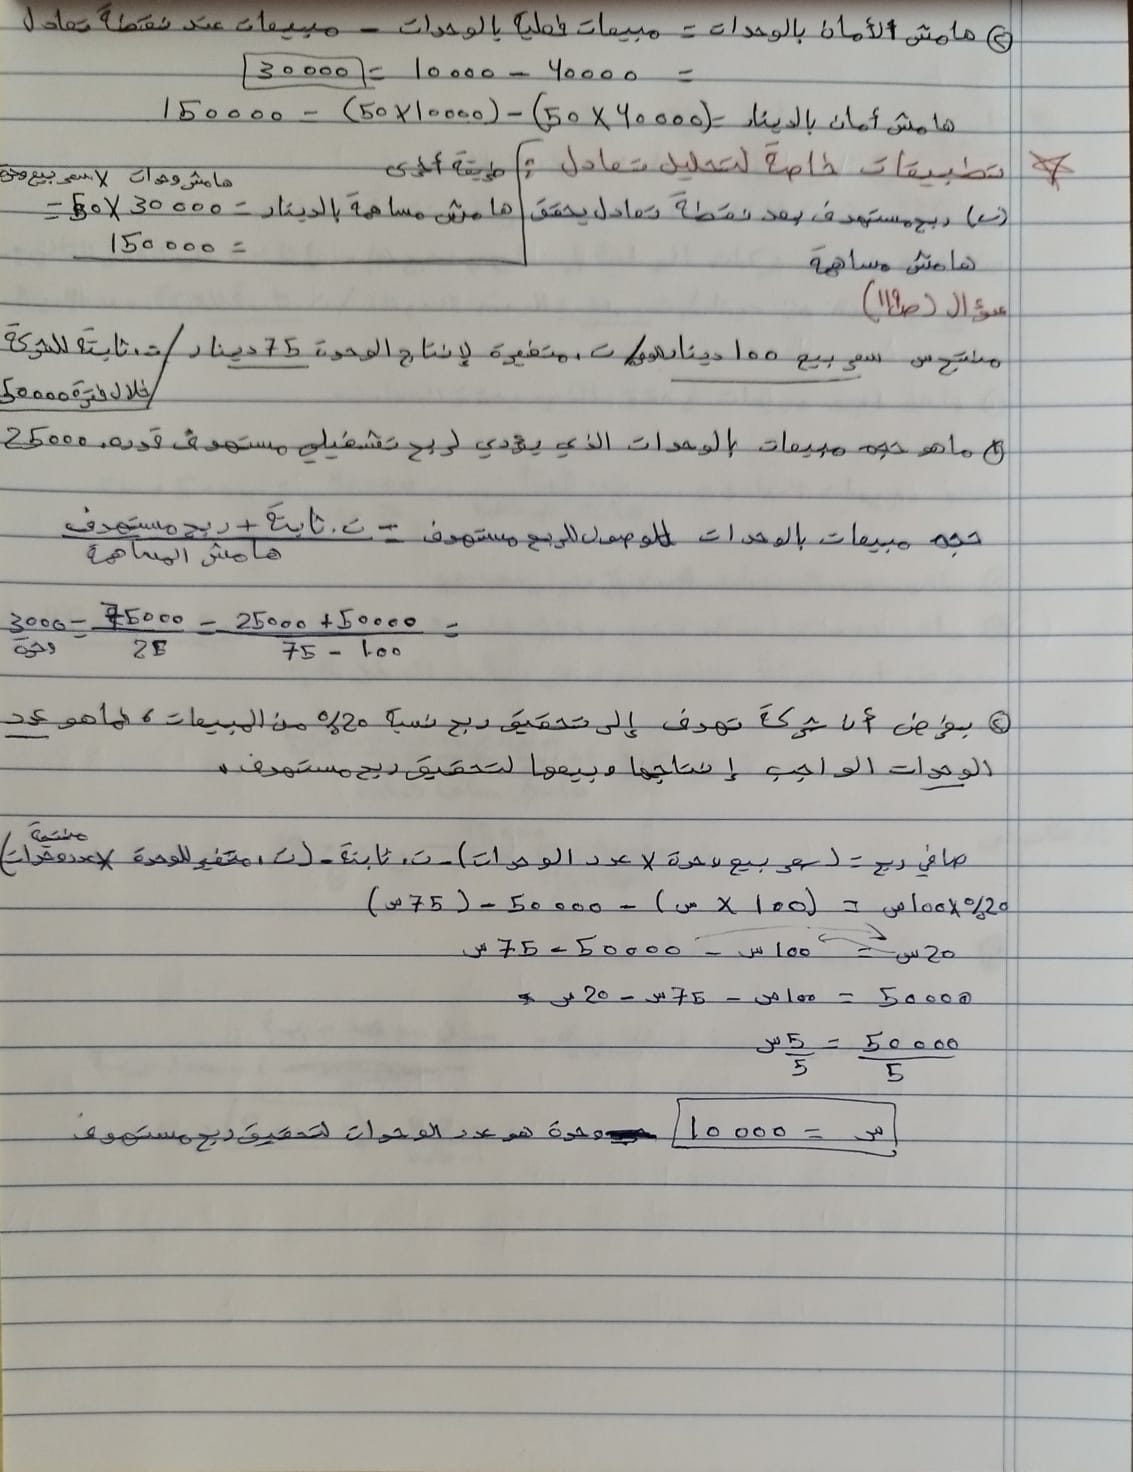 ② هامش الأمان بالوحدات = مبيعات فعلية بالوحدات - مبيعات عند نقطة تعادل
= 40000 - 10000 = 30000
هامش أمان بالدينار = (40000 × 50) - (10000 × 50) - 150000
تطبيقات خاصة لتحليل تعادل :
طريقة أخرى
هامش وحدات × سعر بيع وحدة
(ب) ربح مستهدف بعد نقطة تعادل يحقق
هامش مساهمة
هامش مساهمة بالدينار = 30000 × 50 =
= 150000
سؤال (ص119)
منتج س سعر بيع 100 دينار / ت. متغيرة لإنتاج الوحدة 75 دينار / ت. ثابتة للشركة
خلال فترة 50000
① ما هو حجم مبيعات بالوحدات الذي يؤدي لربح تشغيلي مستهدف قدره 25000
حجم مبيعات بالوحدات للوصول للربح مستهدف = ت. ثابتة + ربح مستهدف / هامش المساهمة
= 50000 + 25000 / 100 - 75 = 75000 / 25 = 3000 وحدة
② بفرض أن شركة تهدف إلى تحقيق ربح نسبة 20% من المبيعات ، فما هو عدد
الوحدات الواجب إنتاجها وبيعها لتحقيق ربح مستهدف .
صافي ربح = (سعر بيع وحدة × عدد الوحدات) - ت. ثابتة - (ت. متغير للوحدة × عدد وحدات منتجة)
20% × 100س = (100 × س) - 50000 - (75س)
20س = 100س - 50000 - 75س
50000 = 100س - 75س - 20س
50000 / 5 = 5س / 5
س = 10000 وحدة هو عدد الوحدات لتحقيق ربح مستهدف